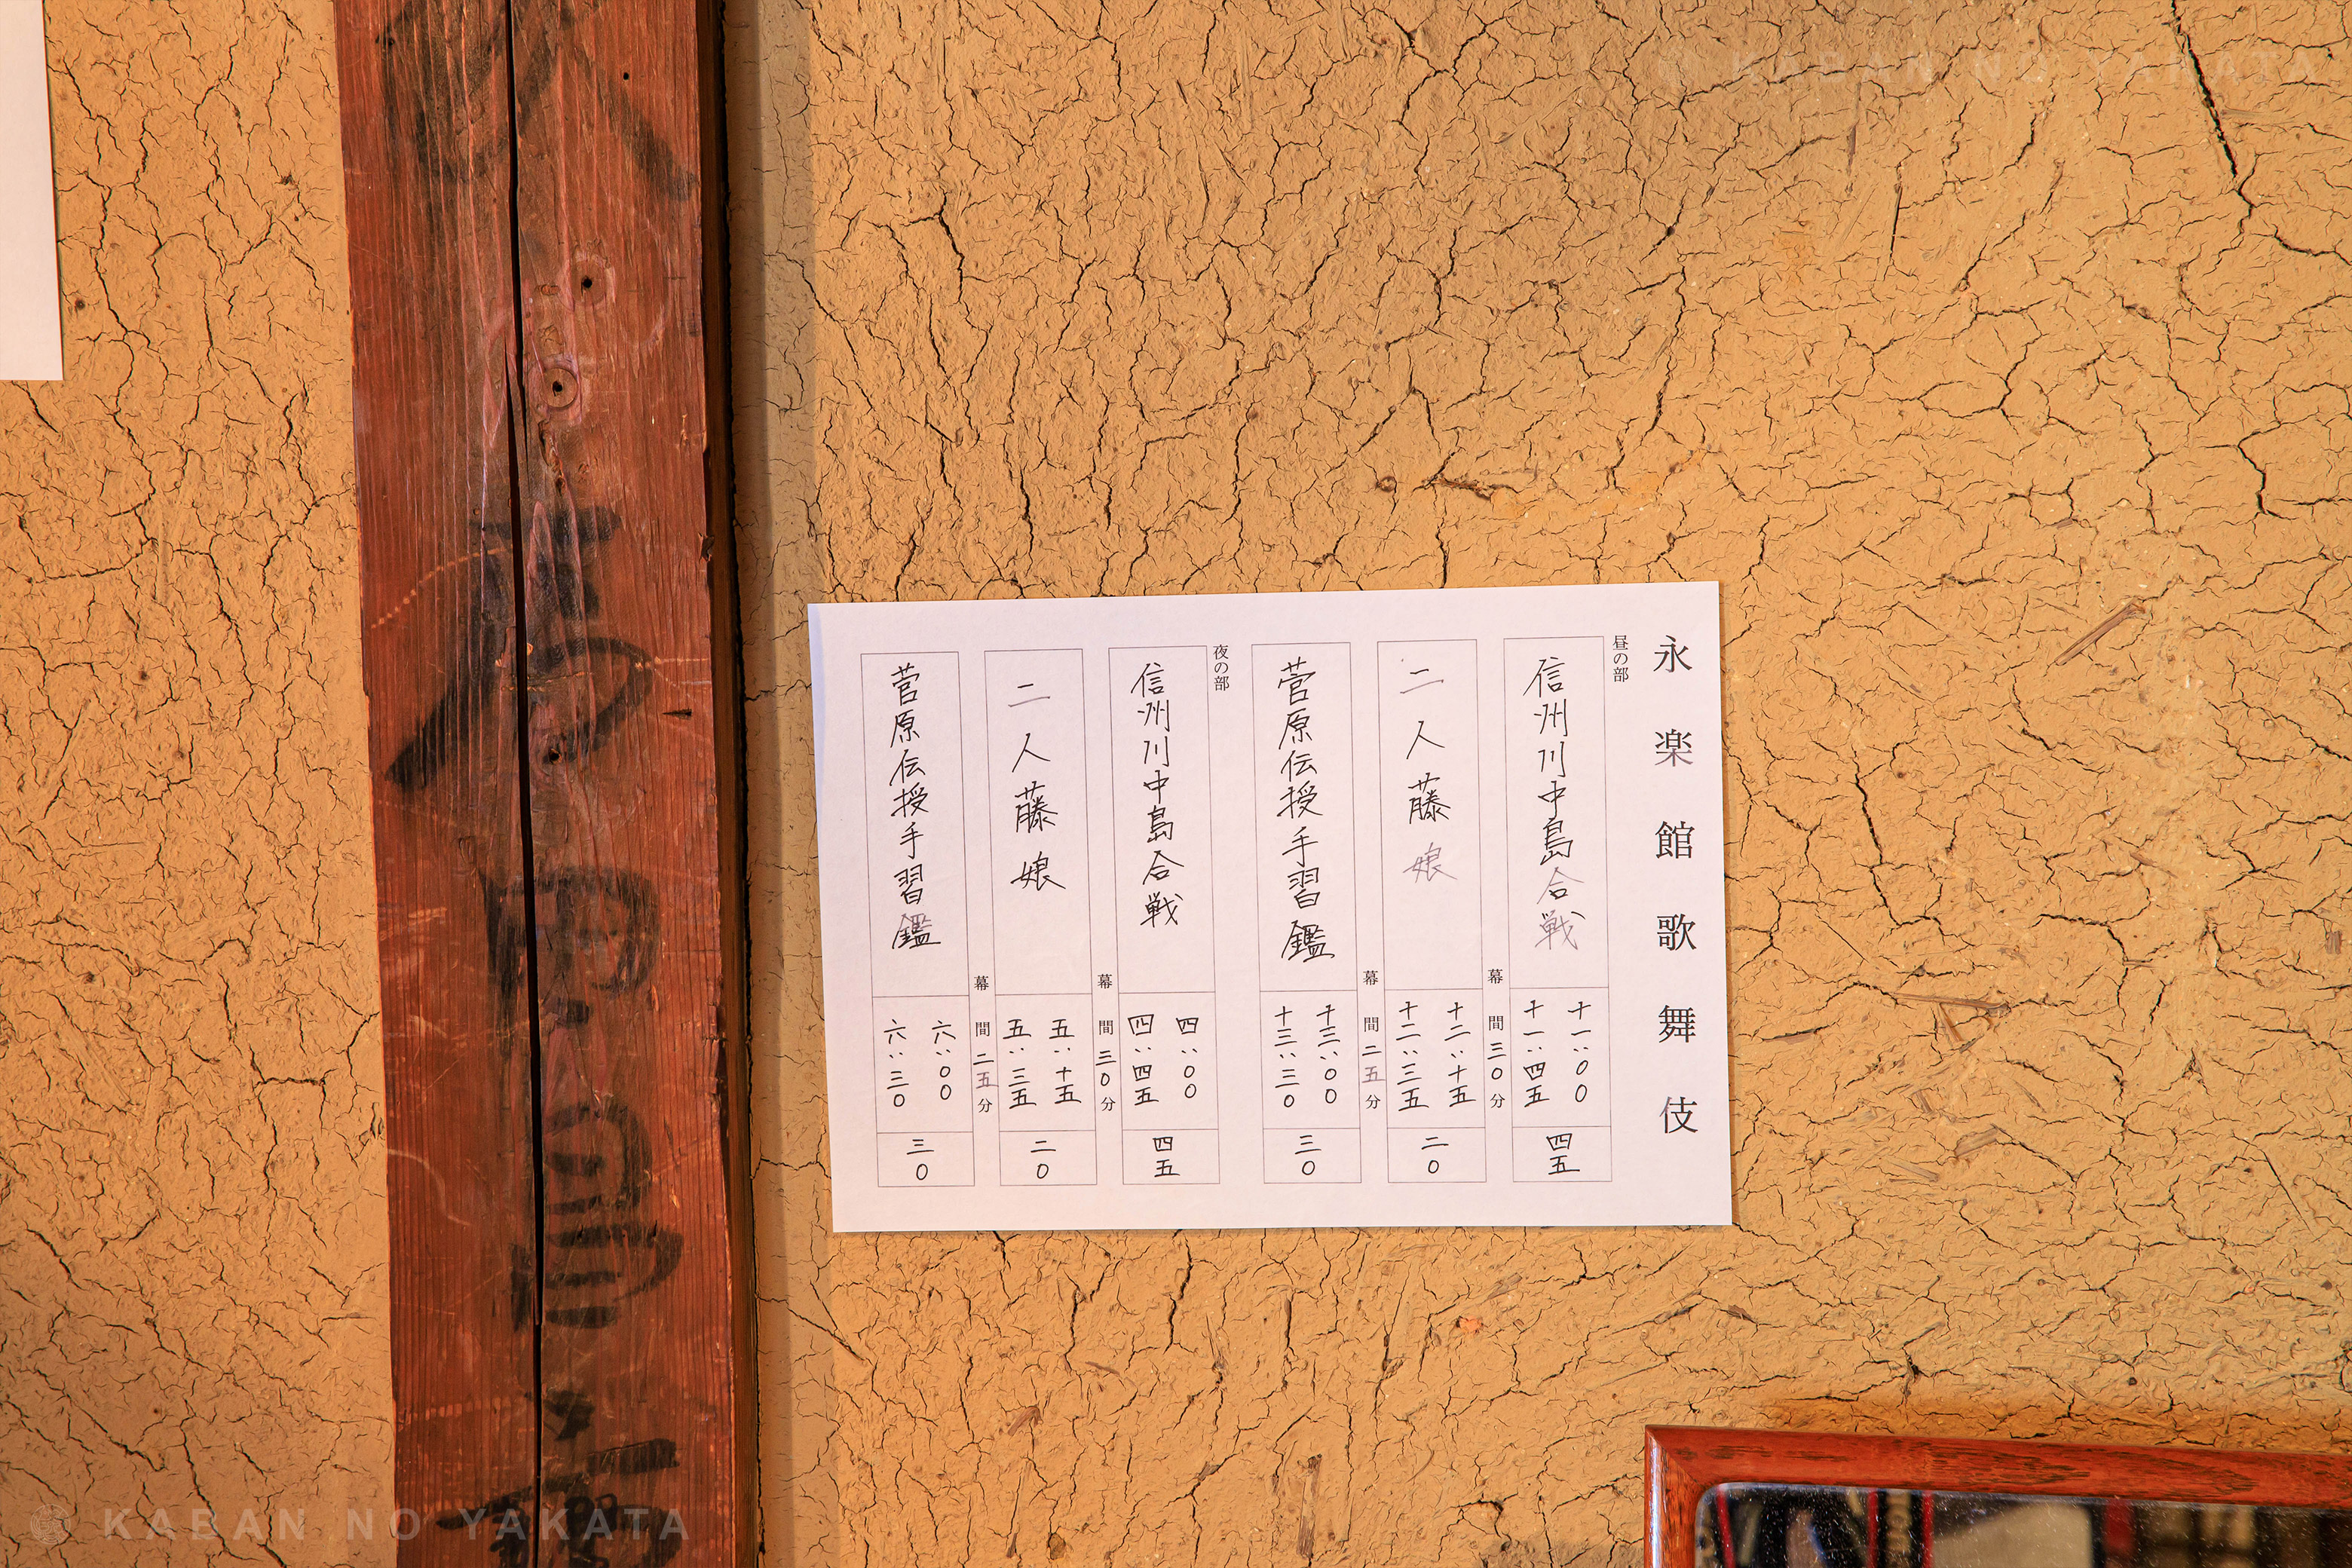 永楽館歌舞伎
昼の部
信州川中島合戦
十一:〇〇
十一:四五
四五
幕間三〇分
二人藤娘
十二:十五
十二:三五
二〇
幕間二五分
菅原伝授手習鑑
十三:〇〇
十三:三〇
三〇
夜の部
信州川中島合戦
四:〇〇
四:四五
四五
幕間三〇分
二人藤娘
五:十五
五:三五
二〇
幕間二五分
菅原伝授手習鑑
六:〇〇
六:三〇
三〇
KABAN NO YAKATA
KABAN NO YAKATA